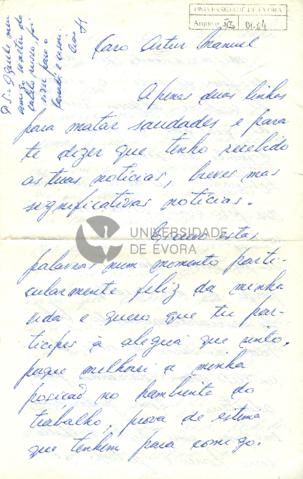 UNIVERSIDADE DE ÉVORA
Arquivo
Caro Artur Manuel
Apenas duas linhas
para matar saudades e para
te dizer que tenho recebido
as tuas notícias, breves mas
significativas notícias.
UNIVERSIDADE
DE ÉVORA
estas
palavras num momento parti-
cularmente feliz da minha
vida e quero que tu par-
ticipes à alegria que sinto,
porque melhorei a minha
posição no ambiente do
trabalho, prova de estima
que tenhem para comigo.
P.S. Aquele meu